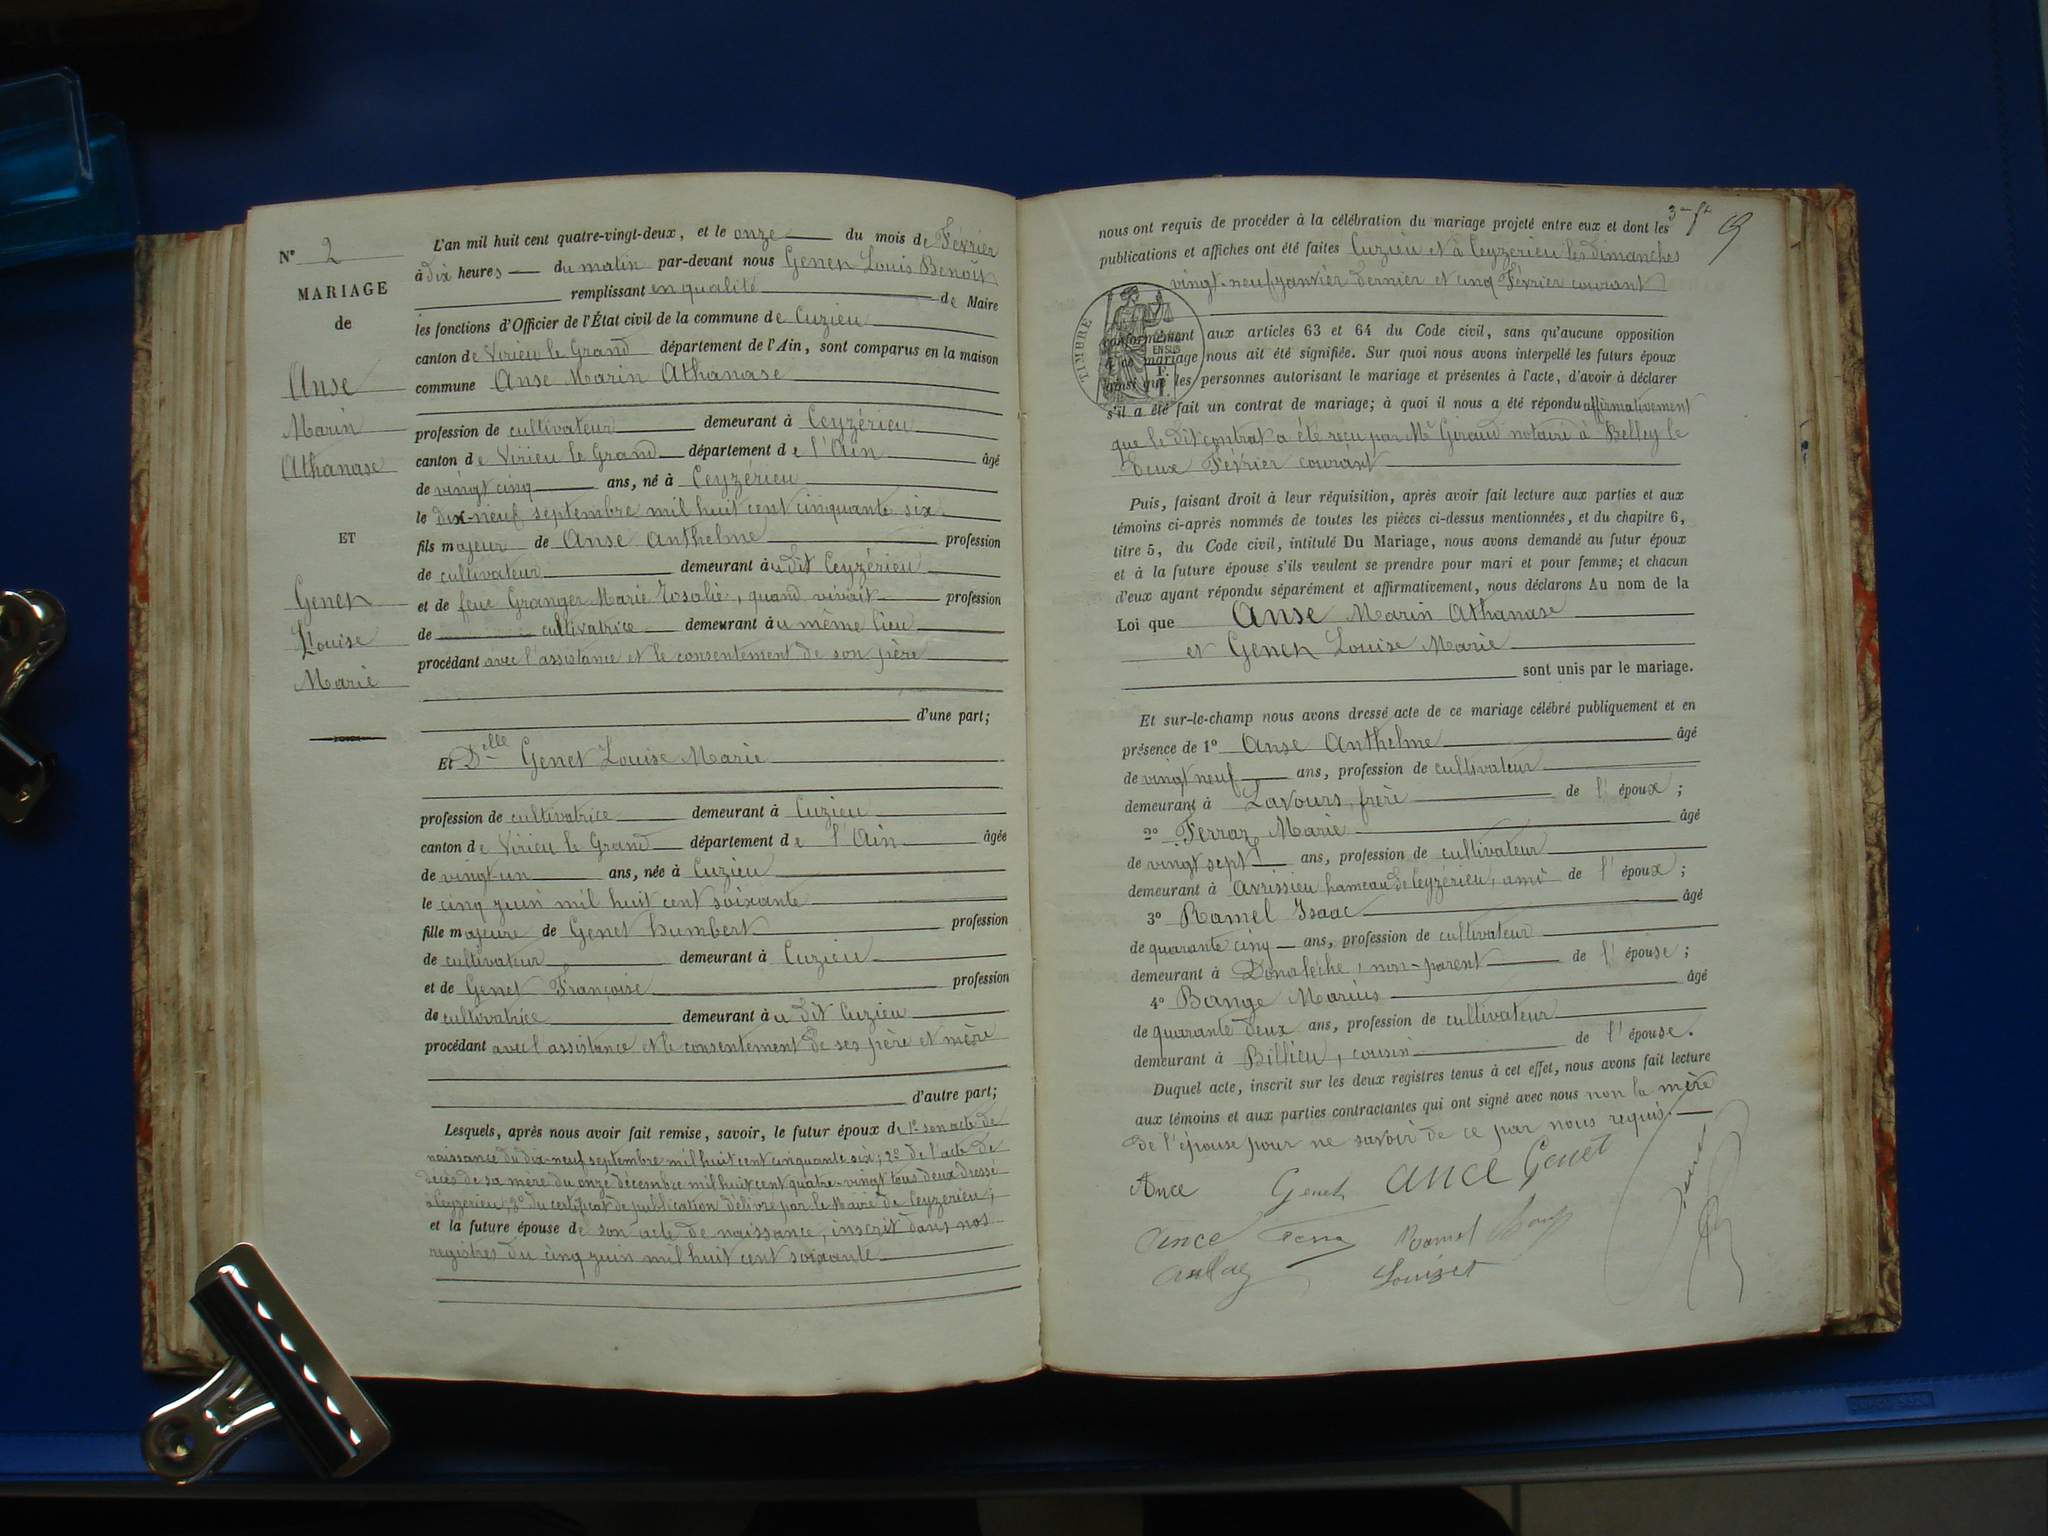 N° 2
MARIAGE
de
Anse
Marin
Athanase
ET
Genet
Louise
Marie
L'an mil huit cent quatre-vingt-deux, et le onze du mois de Février
à dix heures du matin par-devant nous Genet Louis Benoît
remplissant en qualité de Maire
les fonctions d'Officier de l'État civil de la commune de Cuzieu
canton de Virieu le Grand département de l'Ain, sont comparus en la maison
commune Anse Marin Athanase
profession de cultivateur demeurant à Ceyzérieu
canton de Virieu le Grand département de l'Ain âgé
de vingt cinq ans, né à Ceyzérieu
le dix-neuf septembre mil huit cent cinquante six
fils majeur de Anse Anthelme profession
de cultivateur demeurant à u dit Ceyzérieu
et de feue Granger Marie Rosalie, quand vivait profession
de cultivatrice demeurant à u même lieu
procédant avec l'assistance et le consentement de son père
d'une part;
Et Dlle Genet Louise Marie
profession de cultivatrice demeurant à Cuzieu
canton de Virieu le Grand département de l'Ain âgée
de vingt-un ans, née à Cuzieu
le cinq juin mil huit cent soixante
fille majeure de Genet humbert profession
de cultivateur demeurant à Cuzieu
et de Genet Françoise profession
de cultivatrice demeurant à u dit Cuzieu
procédant avec l'assistance et le consentement de ses père et mère
d'autre part;
Lesquels, après nous avoir fait remise, savoir, le futur époux de 1° son acte de
naissance du dix-neuf septembre mil huit cent cinquante six; 2° de l'acte de
décès de sa mère du onze décembre mil huit cent quatre-vingt tous deux dressé
à Ceyzérieu, 3° du certificat de publication délivré par le Maire de Ceyzérieu;
et la future épouse de son acte de naissance, inscrit dans nos
registres du cinq juin mil huit cent soixante
nous ont requis de procéder à la célébration du mariage projeté entre eux et dont les
publications et affiches ont été faites Cuzieu et à Ceyzerieu les dimanches
vingt-neuf janvier dernier et cinq Février courant
TIMBRE
conformément aux articles 63 et 64 du Code civil, sans qu'aucune opposition
à ce mariage nous ait été signifiée. Sur quoi nous avons interpellé les futurs époux
ainsi que les personnes autorisant le mariage et présentes à l'acte, d'avoir à déclarer
s'il a été fait un contrat de mariage; à quoi il nous a été répondu affirmativement
que le dit contrat a été reçu par Me Giraud notaire à Belley le
deux Février courant
Puis, faisant droit à leur réquisition, après avoir fait lecture aux parties et aux
témoins ci-après nommés de toutes les pièces ci-dessus mentionnées, et du chapitre 6,
titre 5, du Code civil, intitulé Du Mariage, nous avons demandé au futur époux
et à la future épouse s'ils veulent se prendre pour mari et pour femme; et chacun
d'eux ayant répondu séparément et affirmativement, nous déclarons Au nom de la
Loi que Anse Marin Athanase
et Genet Louise Marie
sont unis par le mariage.
Et sur-le-champ nous avons dressé acte de ce mariage célébré publiquement et en
présence de 1° Anse Anthelme âgé
de vingt neuf ans, profession de cultivateur
demeurant à Lavours, frère de l'époux;
2° Ferraz Marie âgé
de vingt sept ans, profession de cultivateur
demeurant à Avrissieu hameau de Ceyzérieu, ami de l'époux;
3° Ramel Isaac âgé
de quarante cinq ans, profession de cultivateur
demeurant à Donalèche, non-parent de l'épouse;
4° Bange Marius âgé
de quarante deux ans, profession de cultivateur
demeurant à Billieu, cousin de l'épouse.
Duquel acte, inscrit sur les deux registres tenus à cet effet, nous avons fait lecture
aux témoins et aux parties contractantes qui ont signé avec nous non la mère
de l'épouse pour ne savoir de ce par nous requis.
Ance Genet Ance Genet
Ance Ramel
Louizet